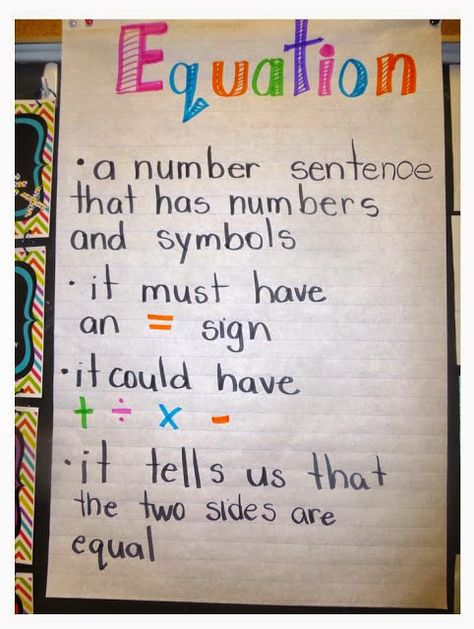 Equation
• a number sentence
that has numbers
and symbols
• it must have
an = sign
• it could have
+ ÷ x -
• it tells us that
the two sides are
equal